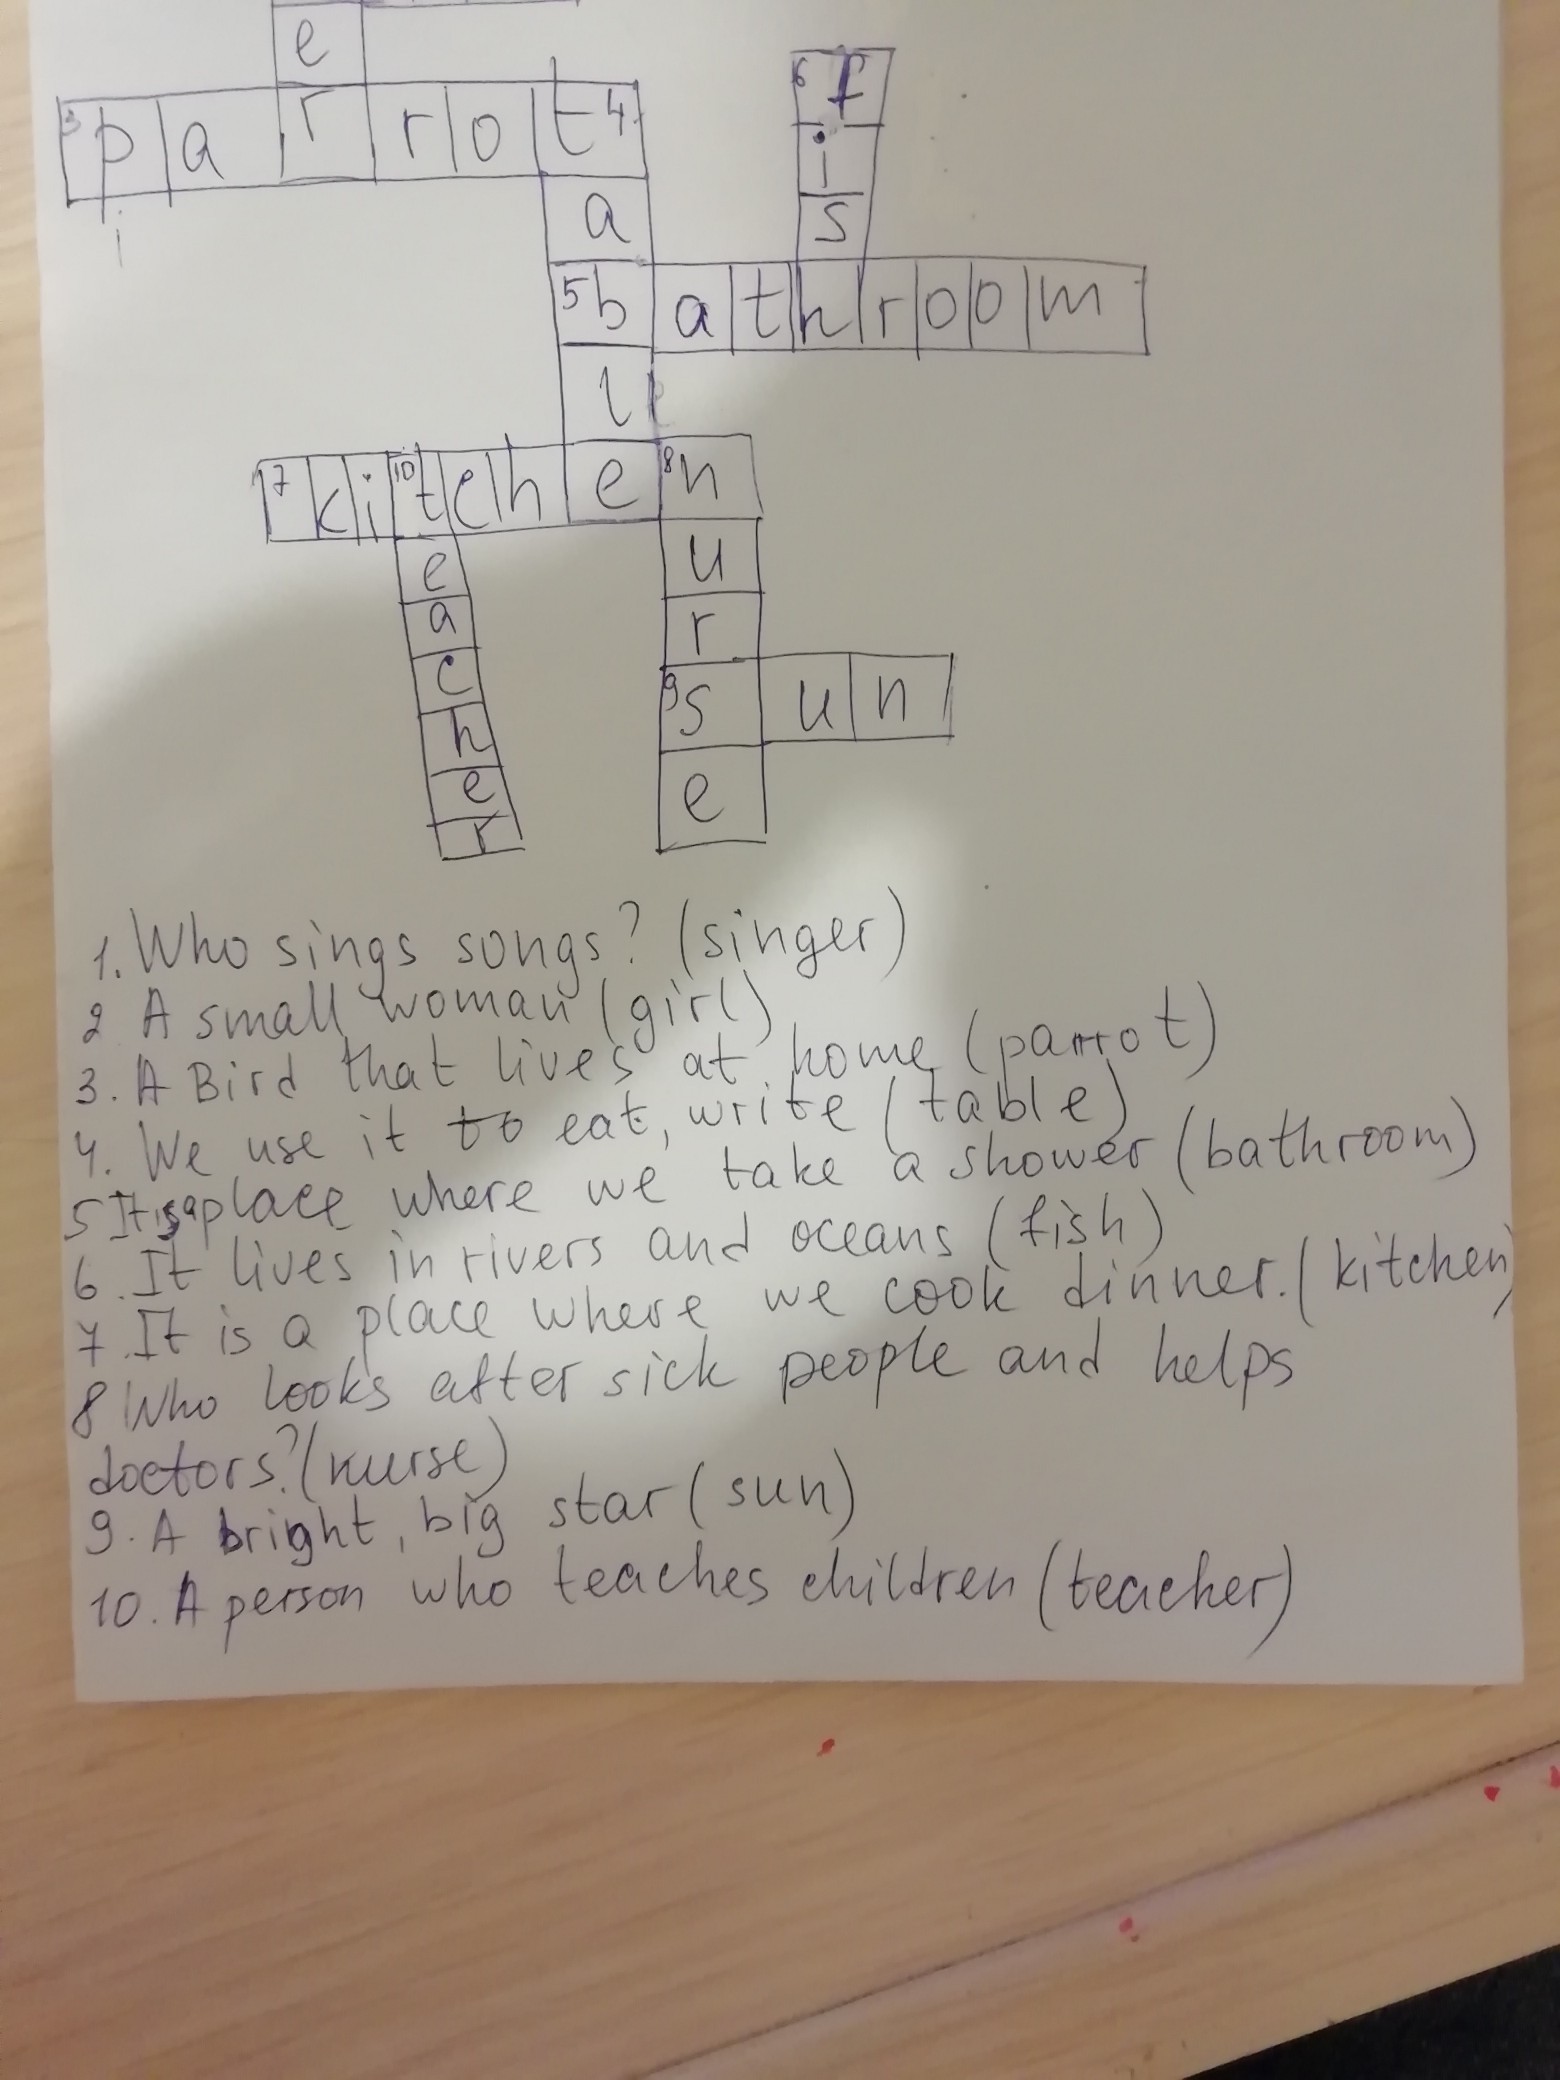 e
3 p a r r o t 4
i
a
6 f
i
s
5 b a t h r o o m
l
7 k i 10 t c h e 8 n
e
a
c
h
e
r
u
r
9 s u n
e
1. Who sings songs? (singer)
2 A small woman (girl)
3. A Bird that lives at home (parrot)
4. We use it to eat, write (table)
5 It is a place where we take a shower (bathroom)
6. It lives in rivers and oceans (fish)
7. It is a place where we cook dinner. (kitchen)
8 Who looks after sick people and helps
doctors? (nurse)
9. A bright, big star (sun)
10. A person who teaches children (teacher)